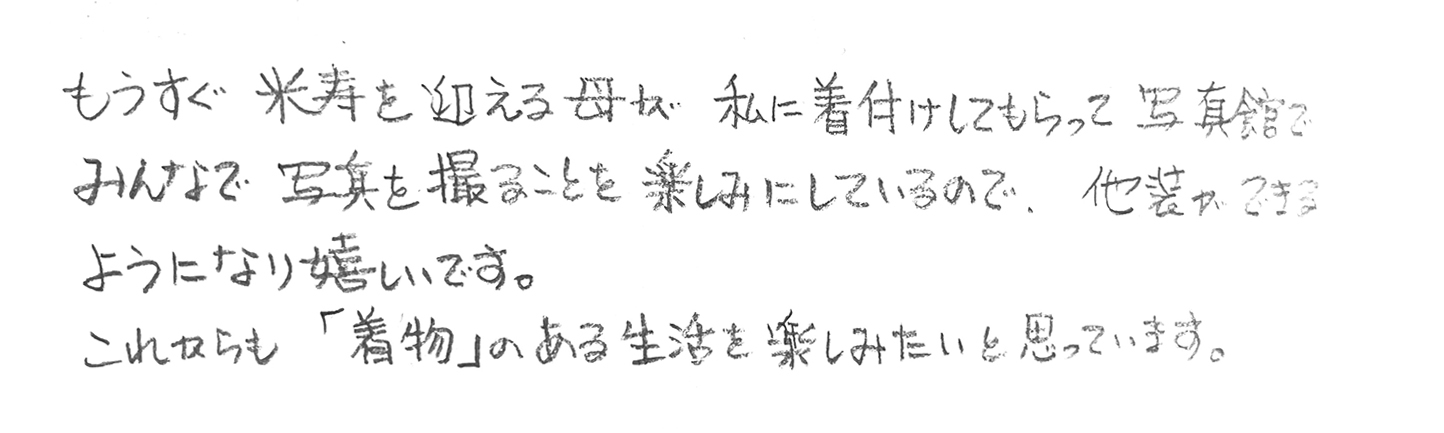 もうすぐ 米寿を迎える母が 私に着付けしてもらって 写真館で
みんなで 写真を撮ることを楽しみにしているので、 他装ができる
ようになり嬉しいです。
これからも 「着物」のある生活を楽しみたいと思っています。